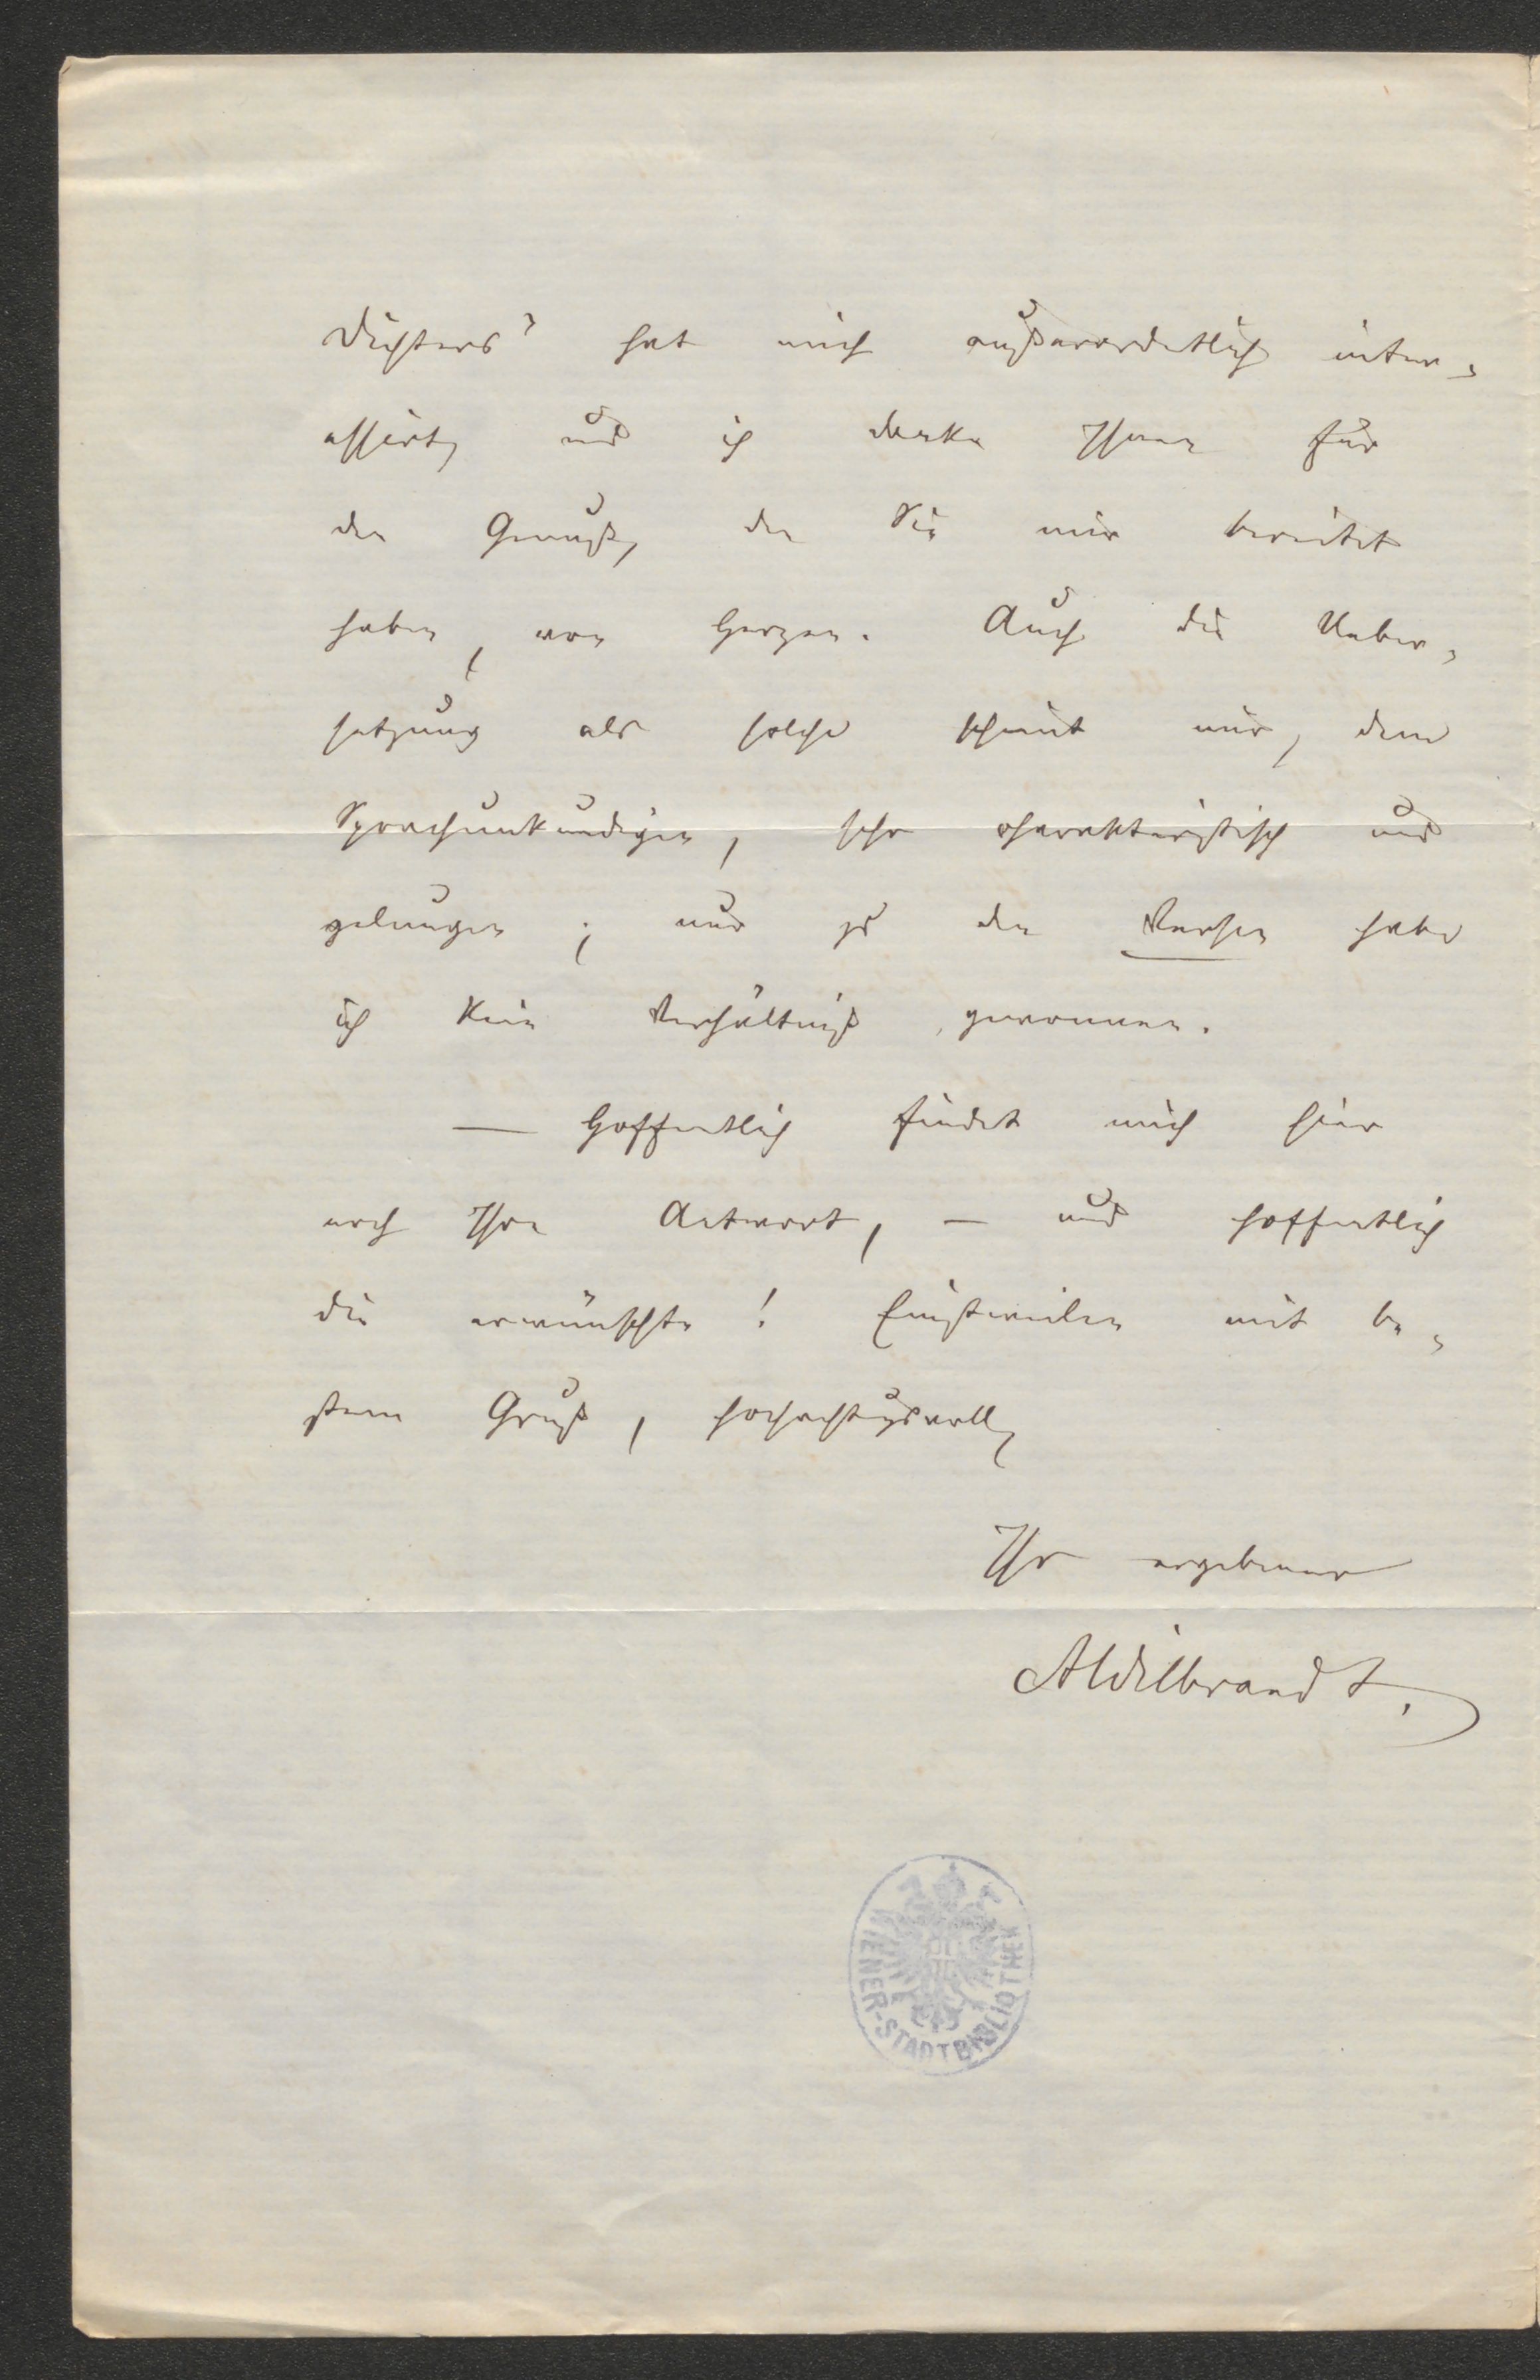 Dichters" hat mich außerordentlich inter-
essirt, und ich danke Ihnen für
den Genuß, den Sie mir bereitet
haben, von Herzen. Auch die Ueber-
setzung als solche scheint mir, dem
Sprachunkundigen, sehr charakteristisch und
gelungen; nur zu den Versen habe
ich kein Verhältniß gewonnen.
— Hoffentlich findet mich hier
noch Ihre Antwort, — und hoffentlich
die erwünschte! Einstweilen mit be-
stem Gruß, hochachtungsvoll,
Ihr ergebener
AWilbrandt.
WIENER-STADTBIBLIOTHEK